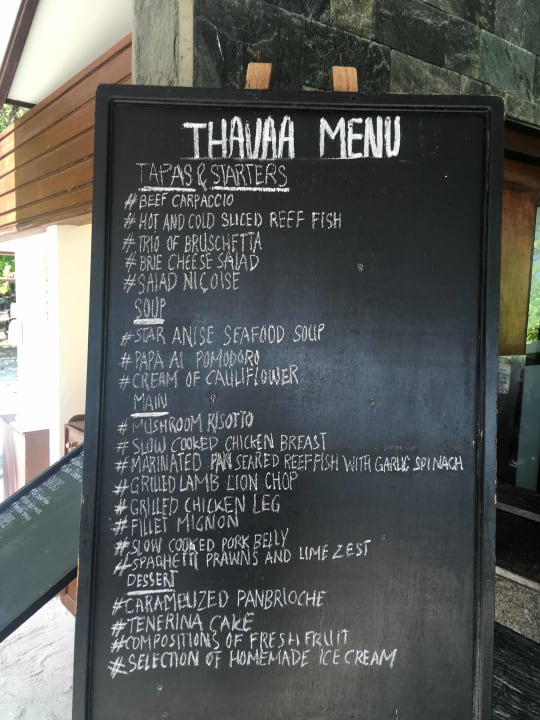 THAVAA MENU
TAPAS & STARTERS
# BEEF CARPACCIO
# HOT AND COLD SLICED REEF FISH
# TRIO OF BRUSCHETTA
# BRIE CHEESE SALAD
# SALAD NIÇOISE
SOUP
# STAR ANISE SEAFOOD SOUP
# PAPA AI POMODORO
# CREAM OF CAULIFLOWER
MAIN
# MUSHROOM RISOTTO
# SLOW COOKED CHICKEN BREAST
# MARINATED PAN SEARED REEF FISH WITH GARLIC SPINACH
# GRILLED LAMB LION CHOP
# GRILLED CHICKEN LEG
# FILLET MIGNON
# SLOW COOKED PORK BELLY
# SPAGHETTI PRAWNS AND LIME ZEST
DESSERT
# CARAMELIZED PANBRIOCHE
# TENERINA CAKE
# COMPOSITIONS OF FRESH FRUIT
# SELECTION OF HOMEMADE ICE CREAM